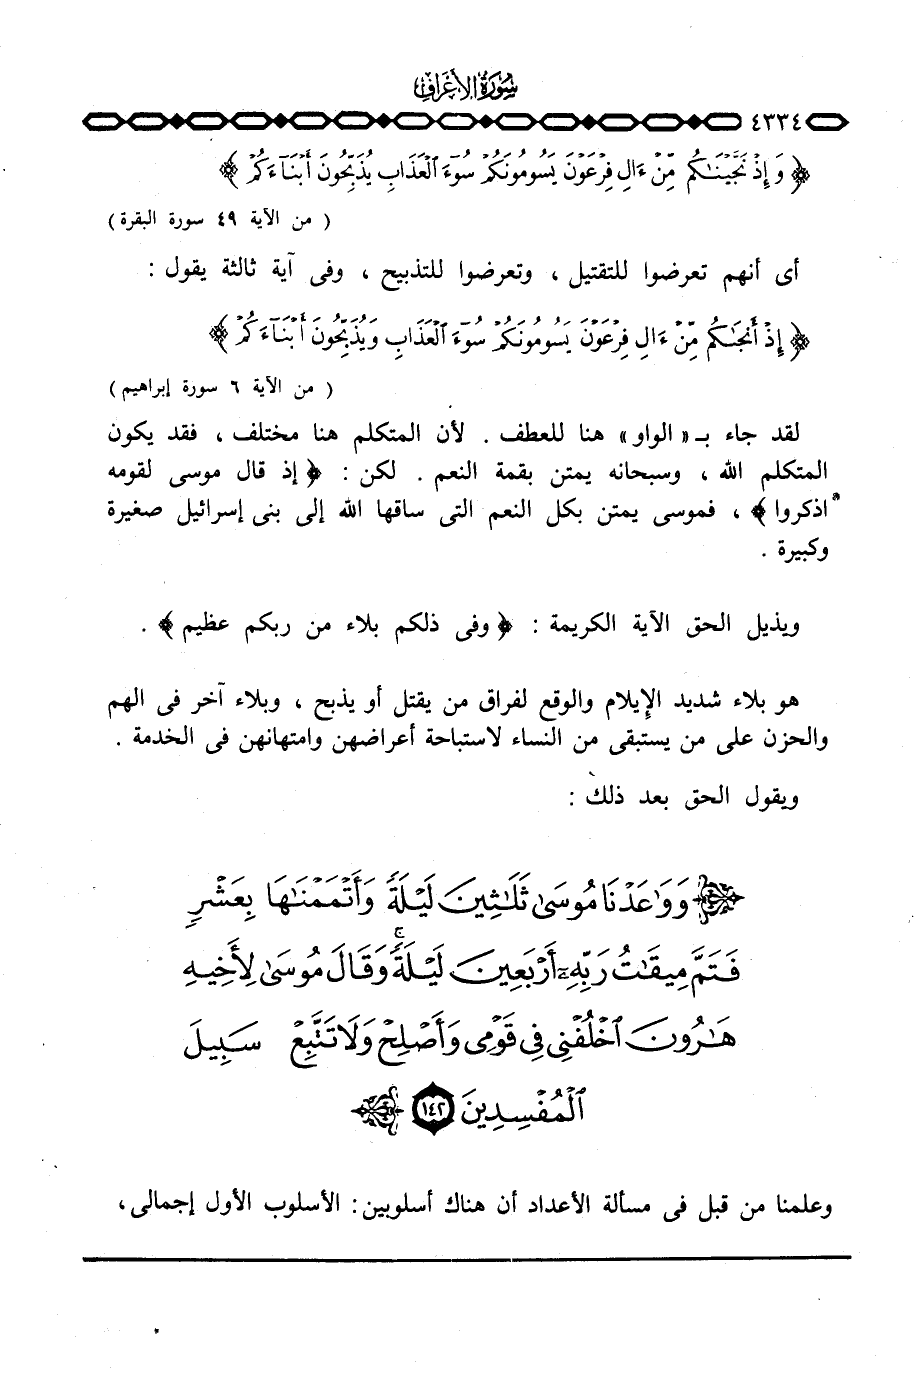 سُورَةُ الأَعْرَافِ
٤٣٣٤
﴿ وَإِذْ نَجَّيْنَٰكُم مِّنْ ءَالِ فِرْعَوْنَ يَسُومُونَكُمْ سُوٓءَ ٱلْعَذَابِ يُذَبِّحُونَ أَبْنَآءَكُمْ ﴾
( من الآية ٤٩ سورة البقرة )
أى أنهم تعرضوا للتقتيل ، وتعرضوا للتذبيح ، وفى آية ثالثة يقول :
﴿ إِذْ أَنجَىٰكُم مِّنْ ءَالِ فِرْعَوْنَ يَسُومُونَكُمْ سُوٓءَ ٱلْعَذَابِ وَيُذَبِّحُونَ أَبْنَآءَكُمْ ﴾
( من الآية ٦ سورة إبراهيم )
لقد جاء بـ « الواو » هنا للعطف . لأن المتكلم هنا مختلف ، فقد يكون
المتكلم الله ، وسبحانه يمتن بقمة النعم . لكن : ﴿ إذ قال موسى لقومه
اذكروا ﴾ ، فموسى يمتن بكل النعم التى ساقها الله إلى بنى إسرائيل صغيرة
وكبيرة .
ويذيل الحق الآية الكريمة : ﴿ وفى ذلكم بلاء من ربكم عظيم ﴾ .
هو بلاء شديد الإيلام والوقع لفراق من يقتل أو يذبح ، وبلاء آخر فى الهم
والحزن على من يستبقى من النساء لاستباحة أعراضهن وامتهانهن فى الخدمة .
ويقول الحق بعد ذلك :
﴿ وَوَٰعَدْنَا مُوسَىٰ ثَلَٰثِينَ لَيْلَةً وَأَتْمَمْنَٰهَا بِعَشْرٍ
فَتَمَّ مِيقَٰتُ رَبِّهِۦٓ أَرْبَعِينَ لَيْلَةً ۚ وَقَالَ مُوسَىٰ لِأَخِيهِ
هَٰرُونَ ٱخْلُفْنِى فِى قَوْمِى وَأَصْلِحْ وَلَا تَتَّبِعْ سَبِيلَ
ٱلْمُفْسِدِينَ ١٤٢ ﴾
وعلمنا من قبل فى مسألة الأعداد أن هناك أسلوبين : الأسلوب الأول إجمالى ،